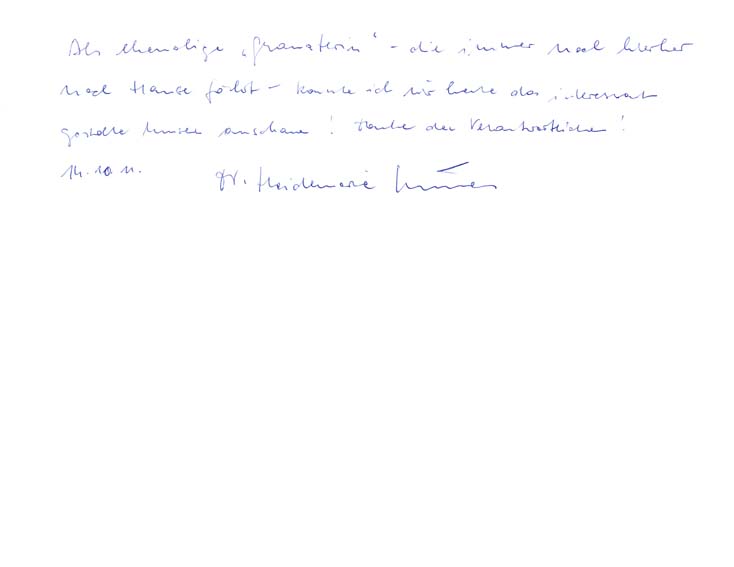 Als ehemalige „Granaterin“ – die immer noch hierher
nach Hause fährt – konnte ich mir heute das interessant
gestaltete Museum anschauen! Danke den Verantwortlichen!
14.10.11. Dr. Heidemarie